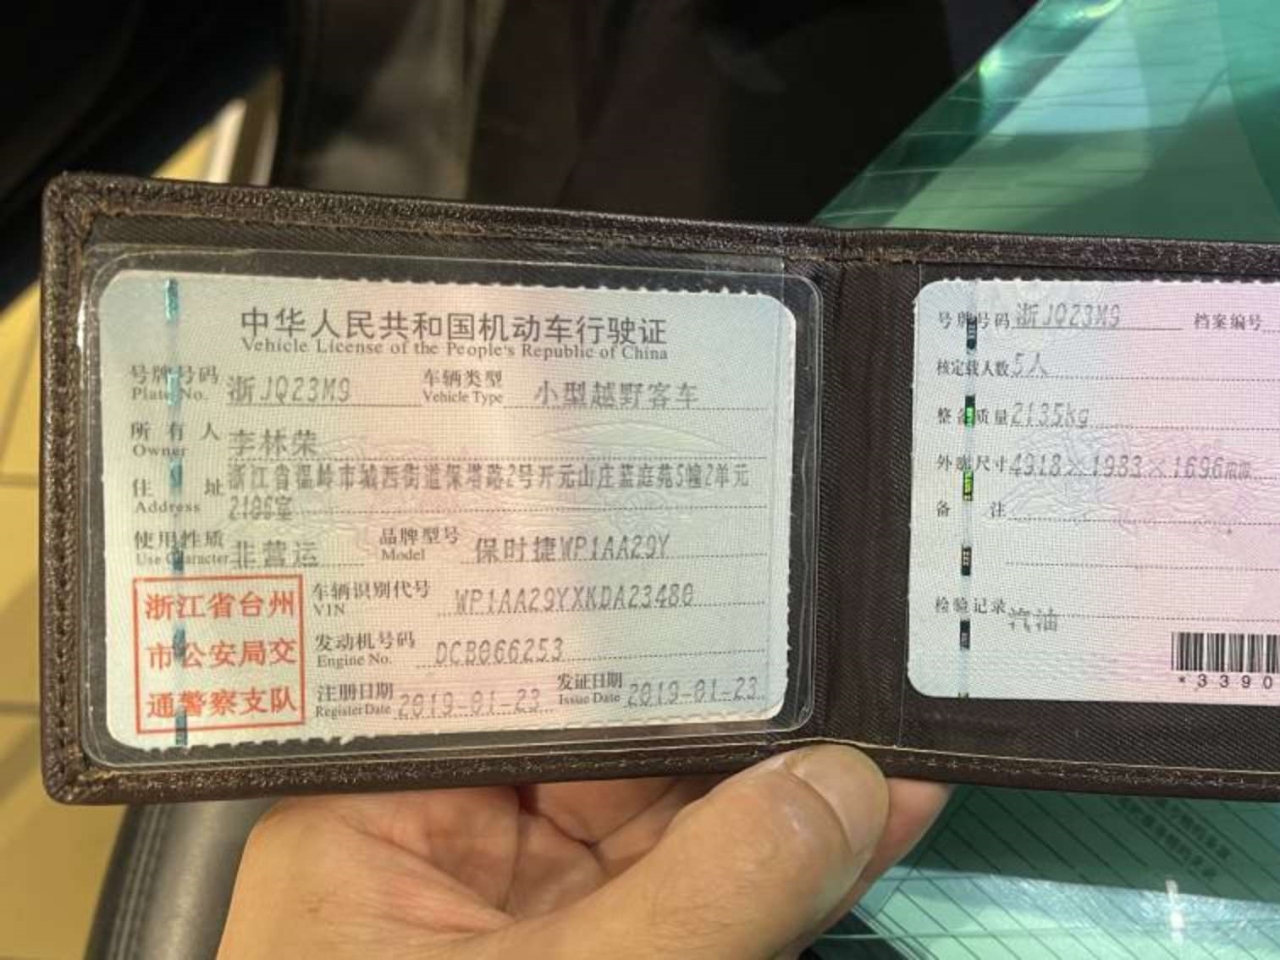 中华人民共和国机动车行驶证
Vehicle License of the People's Republic of China
号牌号码 浙JQ23M9 车辆类型 小型越野客车
Plate No. Vehicle Type
所有人 李林荣
Owner
住址 浙江省温岭市城西街道保塔路2号开元山庄蓝庭苑5幢2单元
Address 2106室
使用性质 非营运 品牌型号 保时捷WP1AA29Y
Use Character Model
浙江省台州
市公安局交
通警察支队
车辆识别代号 WP1AA29YXKDA23480
VIN
发动机号码 DCB066253
Engine No.
注册日期 2019-01-23 发证日期 2019-01-23
Register Date Issue Date
号牌号码 浙JQ23M9 档案编号
核定载人数 5人
整备质量 2135kg
外廓尺寸 4918×1983×1696mm
备注
检验记录 汽油
*3390